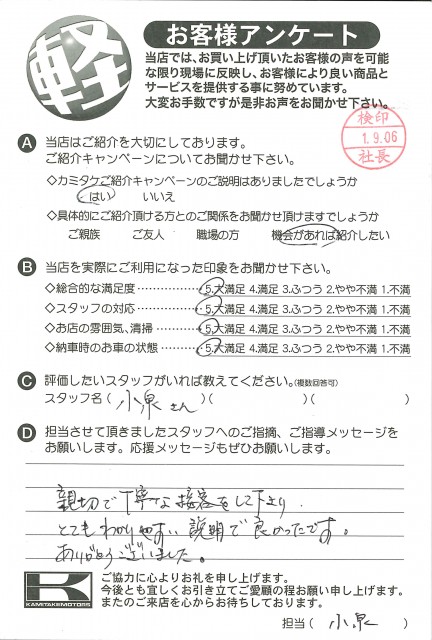 軽
お客様アンケート
当店では、お買い上げ頂いたお客様の声を可能
な限り現場に反映し、お客様により良い商品と
サービスを提供する事に努めています。
大変お手数ですが是非お声をお聞かせ下さい。
検印
1.9.06
社長
A 当店はご紹介を大切にしております。
ご紹介キャンペーンについてお聞かせ下さい。
◇カミタケご紹介キャンペーンのご説明はありましたでしょうか
はい いいえ
◇具体的にご紹介頂ける方とのご関係をお聞かせ頂けますでしょうか
ご親族 ご友人 職場の方 機会があれば紹介したい
B 当店を実際にご利用になった印象をお聞かせ下さい。
◇総合的な満足度 5.大満足 4.満足 3.ふつう 2.やや不満 1.不満
◇スタッフの対応 5.大満足 4.満足 3.ふつう 2.やや不満 1.不満
◇お店の雰囲気、清掃 5.大満足 4.満足 3.ふつう 2.やや不満 1.不満
◇納車時のお車の状態 5.大満足 4.満足 3.ふつう 2.やや不満 1.不満
C 評価したいスタッフがいれば教えてください。(複数回答可)
スタッフ名( 小泉さん )( )( )
D 担当させて頂きましたスタッフへのご指摘、ご指導メッセージを
お願いします。応援メッセージもぜひお願いします。
親切で丁寧な接客をして下さり、
とてもわかりやすい説明で良かったです。
ありがとうございました。
K
KAMITAKEMOTORS
ご協力に心よりお礼を申し上げます。
今後とも宜しくお引き立てご愛顧の程お願い申し上げます。
またのご来店を心からお待ちしております。
担当( 小泉 )